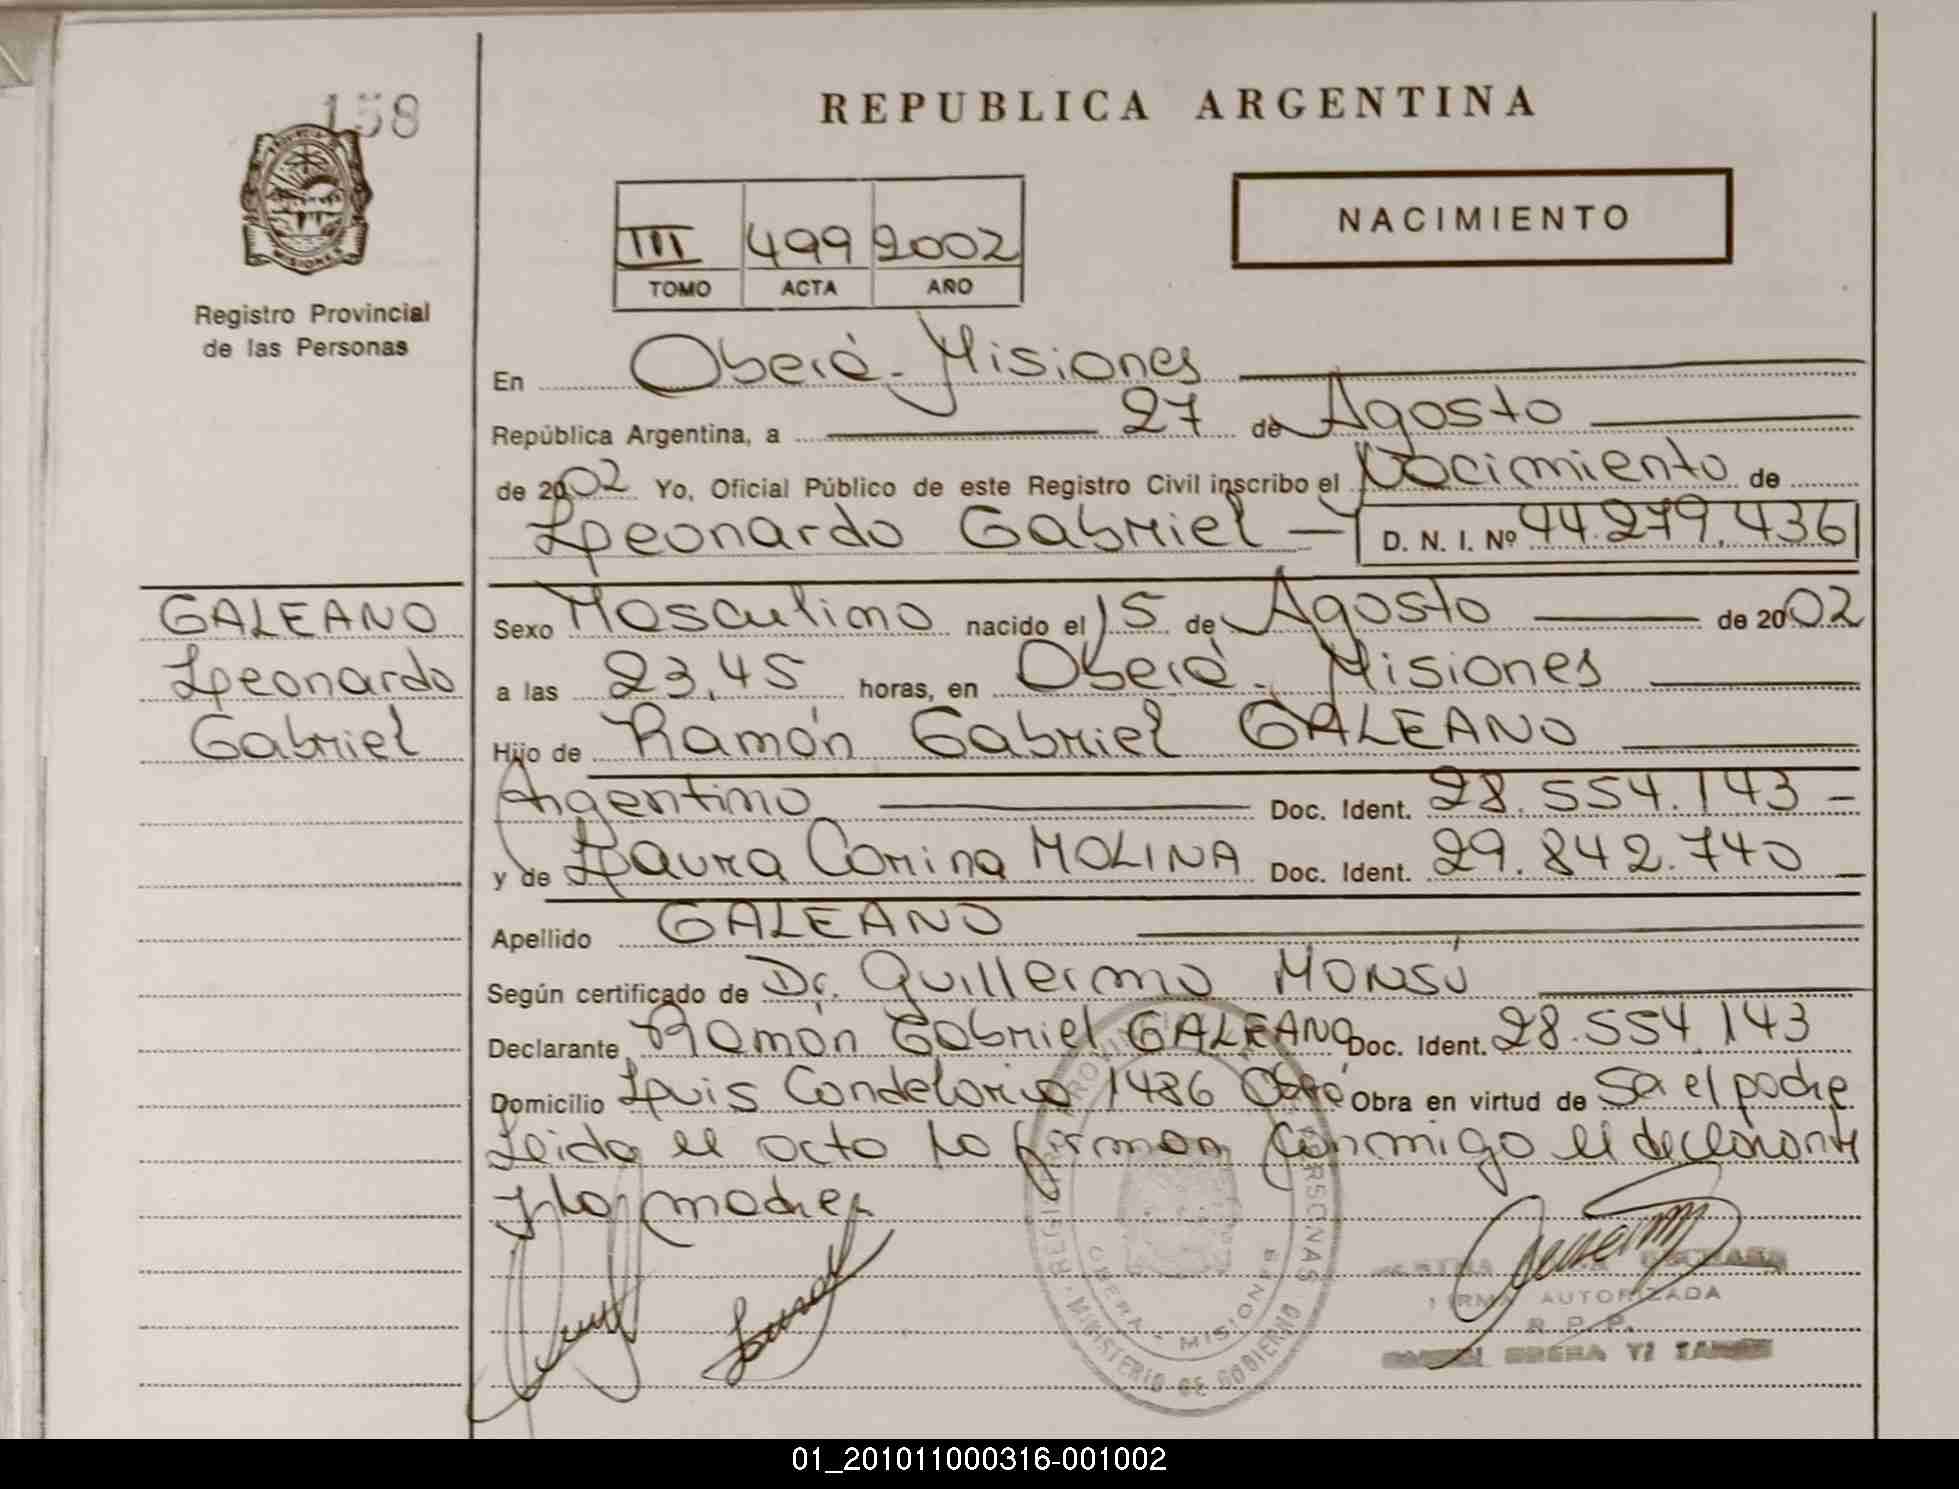 158
PROVINCIA
MISIONES
Registro Provincial
de las Personas
REPUBLICA ARGENTINA
III 499 2002
TOMO ACTA AÑO
NACIMIENTO
En Oberá - Misiones
República Argentina, a 27 de Agosto
de 2002 Yo, Oficial Público de este Registro Civil inscribo el Nacimiento de
Leonardo Gabriel — D. N. I. Nº 44.279.436
GALEANO
Leonardo
Gabriel
Sexo Masculino nacido el 15 de Agosto de 2002
a las 23,45 horas, en Oberá - Misiones
Hijo de Ramón Gabriel GALEANO
Argentino Doc. Ident. 28.554.143 -
y de Laura Corina MOLINA Doc. Ident. 29.842.740
Apellido GALEANO
Según certificado de Dr. Guillermo MONSÚ
Declarante Ramón Gabriel GALEANO Doc. Ident. 28.554.143
Domicilio Luis Candelario 1486 Oberá Obra en virtud de Ser el padre
Leida el acta la firman conmigo el declarante
y la madre
MINISTERIO DE GOBIERNO
OBERA - MISIONES
FIRMA AUTORIZADA
R. P. P.
01_201011000316-001002